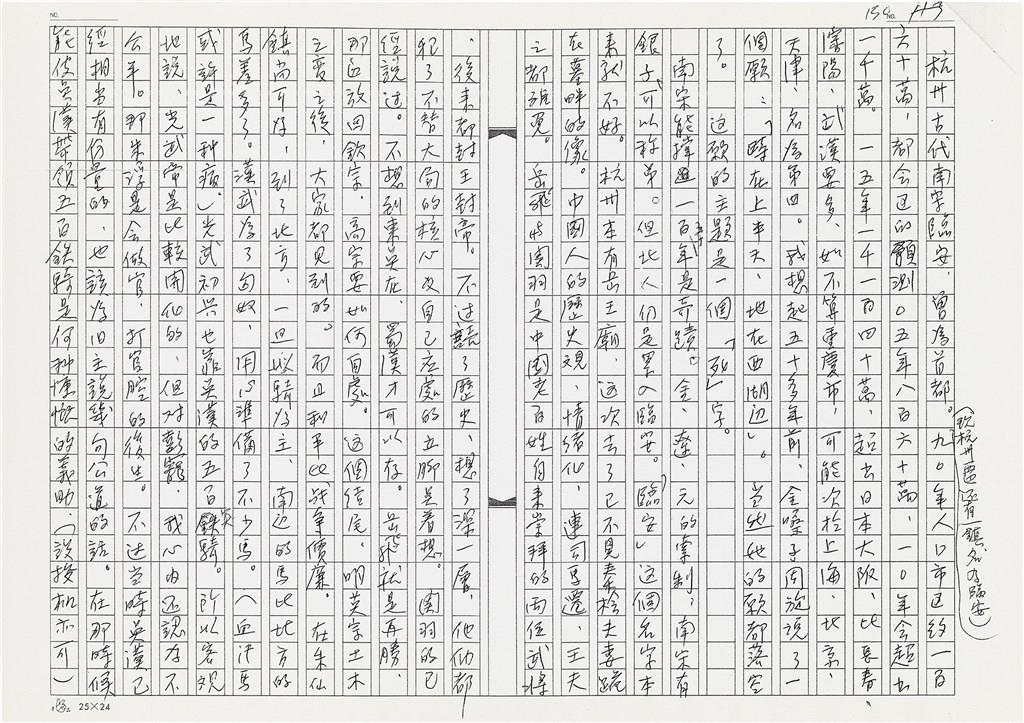 NO.
134 NO. 113
杭州古代南宋臨安，曾為首都。九〇年人口市區約一百
（現杭州區還有一鎮名為臨安）
六十萬，都會區的預測〇五年八百六十萬，一〇年會超出
一千萬。一五年一千一百四十萬，超出日本大阪，比長春、
瀋陽、武漢要多，如不算重慶市，可能次於上海、北京、
天津，名為第四。我想起五十多年前，金嗓子周旋說了一
個願：「時在上半天，地在西湖邊」。當然她的願都落空
了。這願的主題是一個「死」字。
南宋能撐過一百五十年是奇蹟。金、遼、元的牽制，南宋有
銀子，可以稱弟。但北人仍是累入臨安。「臨安」這個名字本
來就不好。杭州本有岳王廟，這次去了已不見秦檜夫妻跪
在墓畔的像。中國人的歷史觀，情緒化，連司馬遷、王夫
之都難免。岳飛與關羽是中國老百姓自來崇拜的兩位武將
，後來都封王封帝。不過讀了歷史，想了深一層，他們都
犯了不替大局的核心及自己應處的立腳點着想。關羽的已
經說過。不想到東吳在，蜀漢才可以存。岳飛就是再勝，
那迎放回欽宗，高宗要如何自處。這個結尾，明英宗土木
之變之後，大家都見到的。而且和平比戰爭價廉。在朱仙
鎮尚可好，到了北方，一旦以騎為主，南邊的馬比北方的
馬差多了。漢武為了匈奴，用心準備了不少馬。（血汗馬
或許是一種病。）光武初興也靠吳漢的五百鐵騎。所以客觀
地說，光武帝是比較開化的，但對彭寵，我心內還認為不
公平。那朱浮是會做官，打官腔的後生。不過當時吳漢已
經相當有份量的，也該為旧主說幾句公道的話。在那時候
能使吳漢帶領五百鐵騎是何種慷慨的義助，（說投机亦可）
25×24